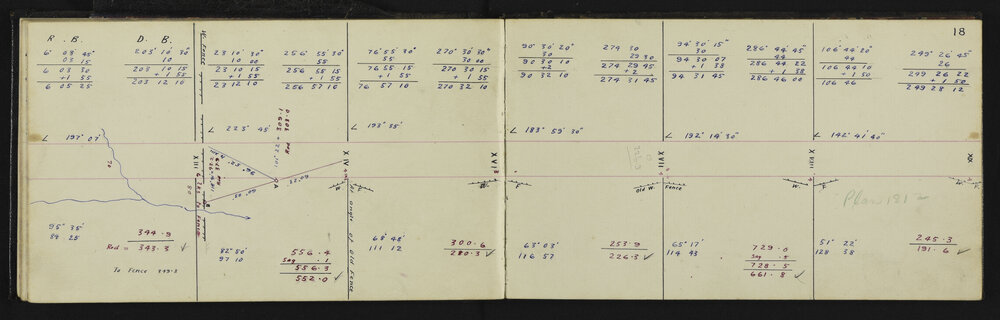 18
R. B.
D. B.
W. Fence
6° 03' 45"
03 15
6 03 30
+1 55
6 05 25
203° 10' 30"
10
203 10 15
+1 55
203 12 10
23 10' 30"
10 00
23 10 15
+1 55
23 12 10
256° 55' 30"
55
256 55 15
+1 55
256 57 10
76° 55' 30"
55
76 55 15
+1 55
76 57 10
270° 30' 30"
30 00
270 30 15
+1 55
270 32 10
90° 30' 20"
30
90 30 10
+2
90 32 10
274 30
29 30
274 29 45
+2
274 31 45
94° 30' 15"
30
94 30 07
+1 38
94 31 45
286° 44' 45"
44
286 44 22
+1 38
286 46 00
106° 44' 20"
44
106 44 10
+1 50
106 46
249° 26' 45"
26
249 26 22
+1 50
249 28 12
∠ 197° 07'
∠ 223° 45'
∠ 193° 35'
∠ 183° 59' 30"
∠ 192° 14' 30"
∠ 142° 41' 40"
XIII
XIV
XVI
XVII
XVIII
XX
A
32.09
Angle of Old Fence
W.
E.
Old W.
Fence
W.
E.
Plan 181
95° 35'
84 25
344.9
Red = 343.3 ✓
To Fence 343.3
82° 50'
97 10
556.4
Sag .1
556.3
552.0 ✓
68° 48'
111 12
300.6
280.3 ✓
63° 03'
116 57
253.9
226.3 ✓
65° 17'
114 43
729.0
Sag .5
728.5
661.8 ✓
51° 22'
128 38
245.3
191.6 ✓